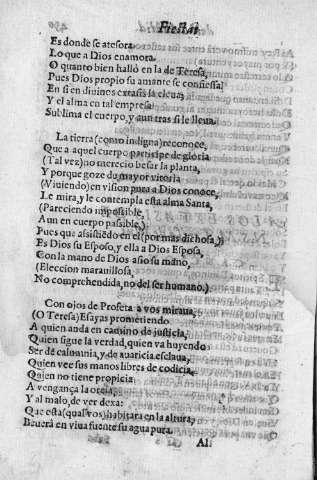 Fiestas
Es donde se atesora
Lo que a Dios enamora.
O quanto bien hallò en la de Teresa,
Pues Dios propio su amante se confiessa!
En si en diuinos extasis la eleua,
Y el alma en tal empresa
Sublima el cuerpo, y aun tras si le lleua.
La tierra (como indigna) reconoce,
Que a aquel cuerpo participe de gloria
(Tal vez) no merecio besar la planta,
Y porque goze de mayor vitoria
(Viuiendo) en vision pura a Dios conoce,
Le mira, y le contempla esta alma Santa,
(Pareciendo impossible,
A un en cuerpo pasible,)
Pues que asistiedo en el (por mas dichosa,)
Es Dios su Esposo, y ella a Dios Esposa,
Con la mano de Dios asio su mano,
(Eleccion marauillosa,
No comprehendida, no del ser humano.)
Con ojos de Profeta a vos miraua,
(O Teresa) Esayas prometiendo
A quien anda en camino de justicia,
Quien sigue la verdad, quien va huyendo
Ser de calunnia, y de auaricia esclaua,
Quien vee sus manos libres de codicia,
Quien no tiene propicia
A vengança la oreja,
Y al malo, de ver dexa:
Que esta (qual vos) habitara en la altura,
Beuerà en viua fuente su agua pura.
Al